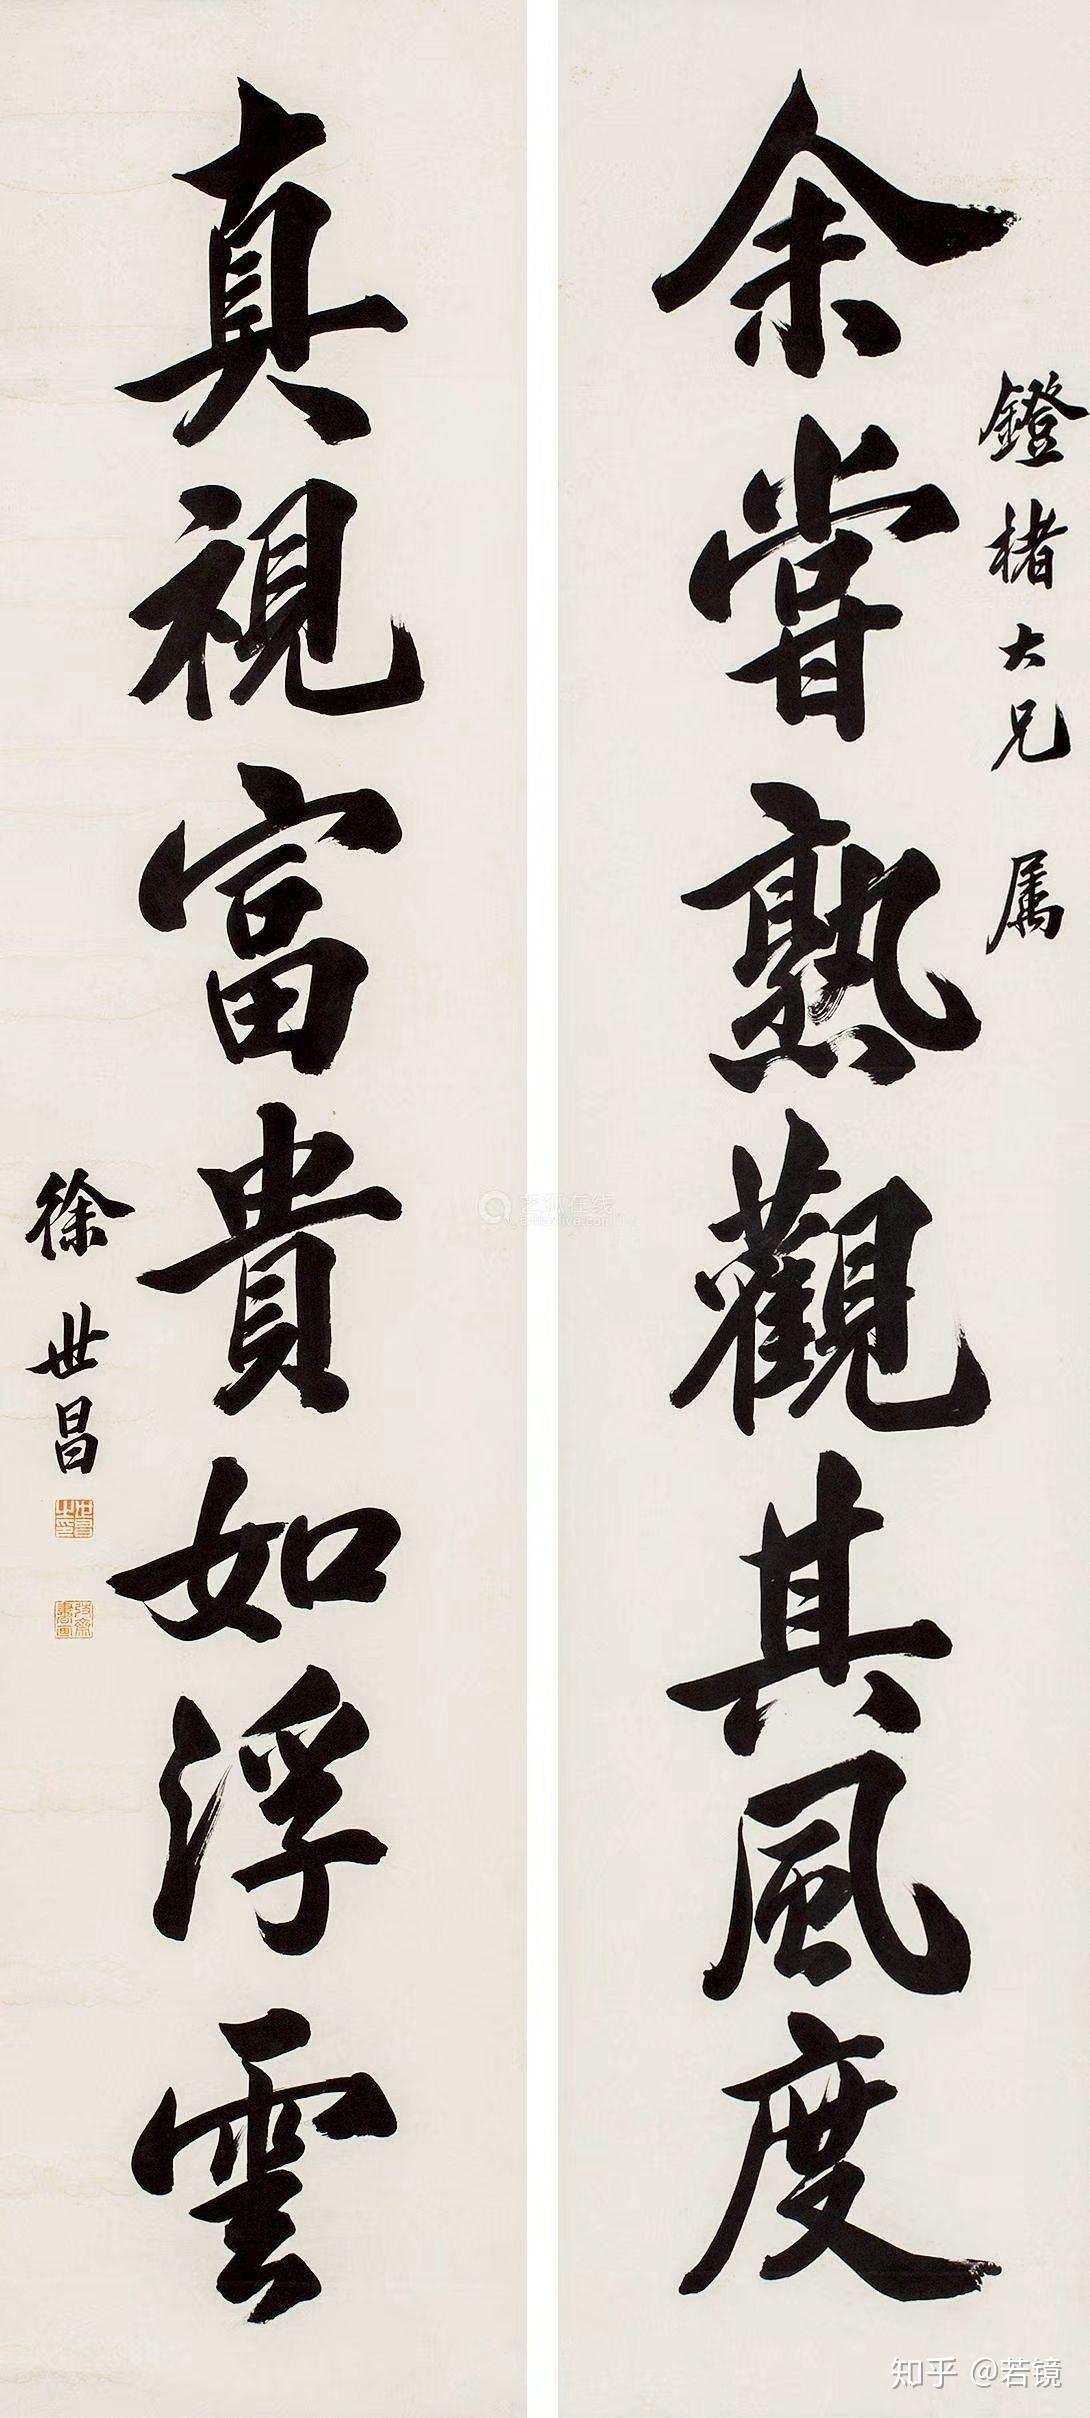 鐙楮大兄 属
余嘗熟觀其風度
真視富貴如浮雲
徐世昌
知乎 @若镜